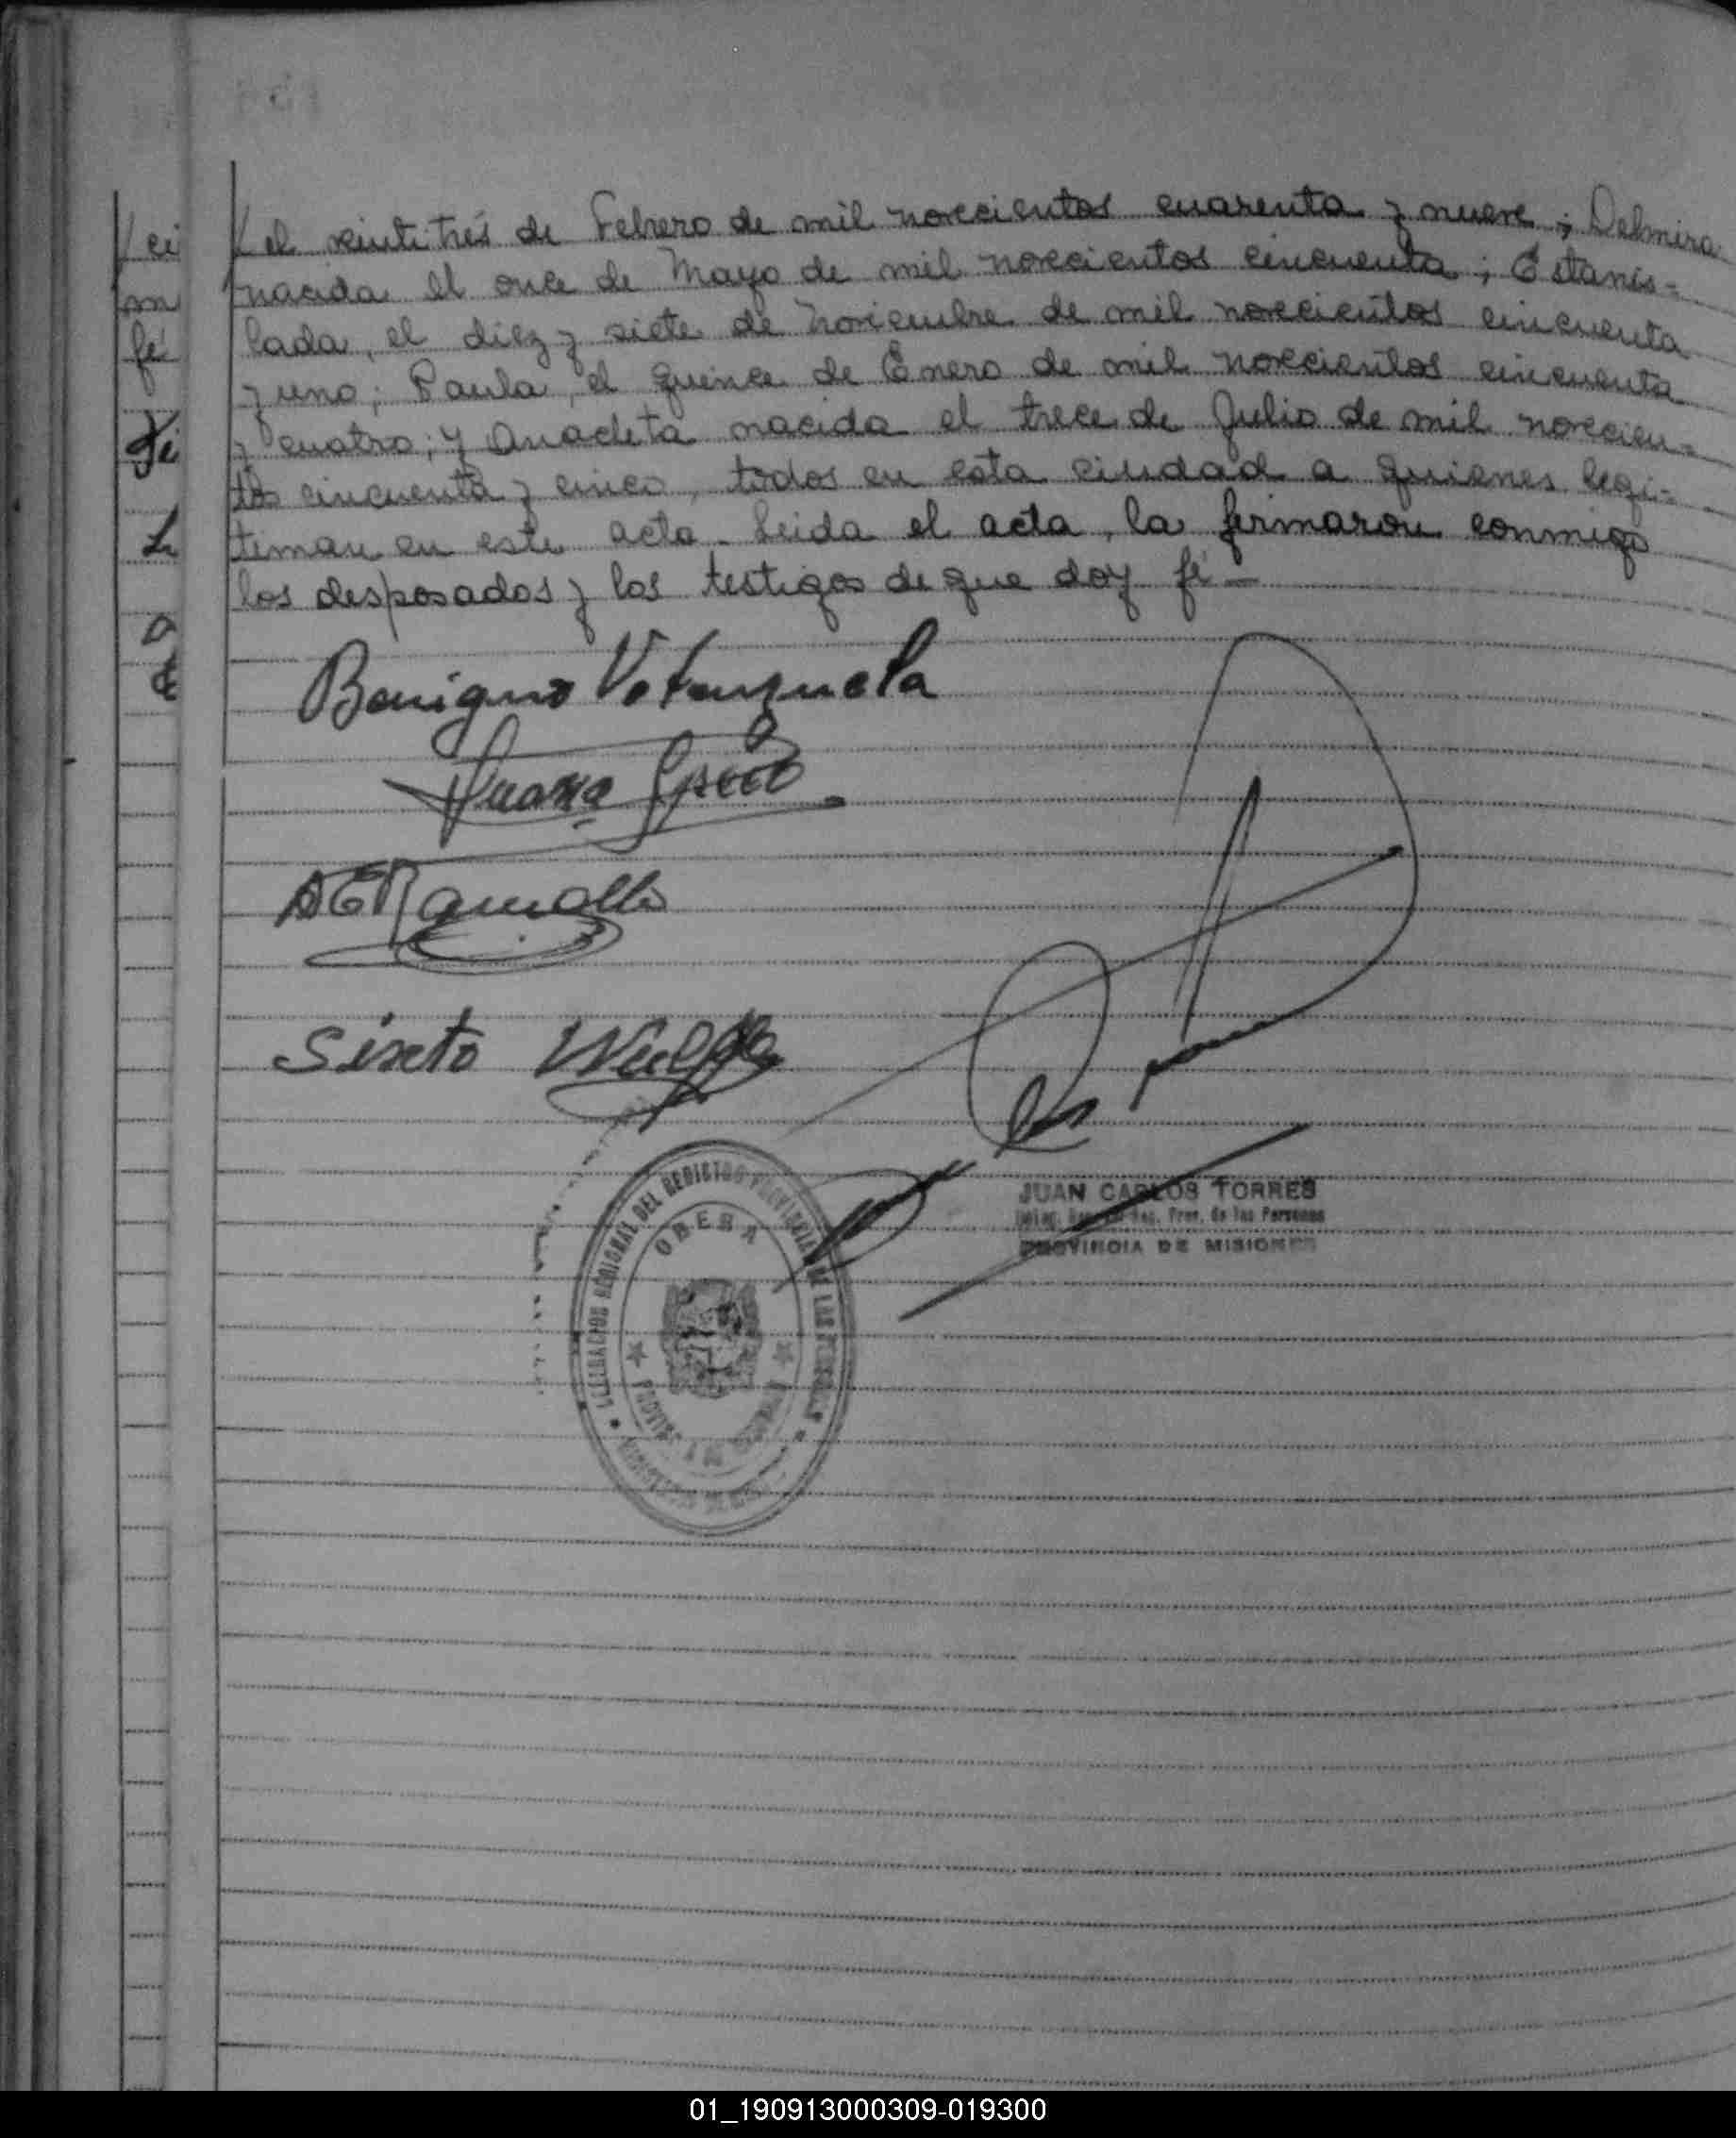 el veintitrés de Febrero de mil novecientos cuarenta y nueve ; Delmira
nacida el once de Mayo de mil novecientos cincuenta ; Estanis=
lada, el diez y siete de noviembre de mil novecientos cincuenta
y uno; Paula, el quince de Enero de mil novecientos cincuenta
y cuatro; y Anacleta nacida el trece de Julio de mil novecien=
tos cincuenta y cinco, todos en esta ciudad a quienes legi=
timan en este acto. Leida el acta, la firmaron conmigo
los desposados y los testigos de que doy fé -
ci
m
fé
Benigno Valenzuela
Juana
Sixto
DEL REGISTRO PROVINCIAL DE LAS PERSONAS
OBERA
JUAN CARLOS TORRES
Prov. de las Personas
PROVINCIA DE MISIONES
01_190913000309-019300